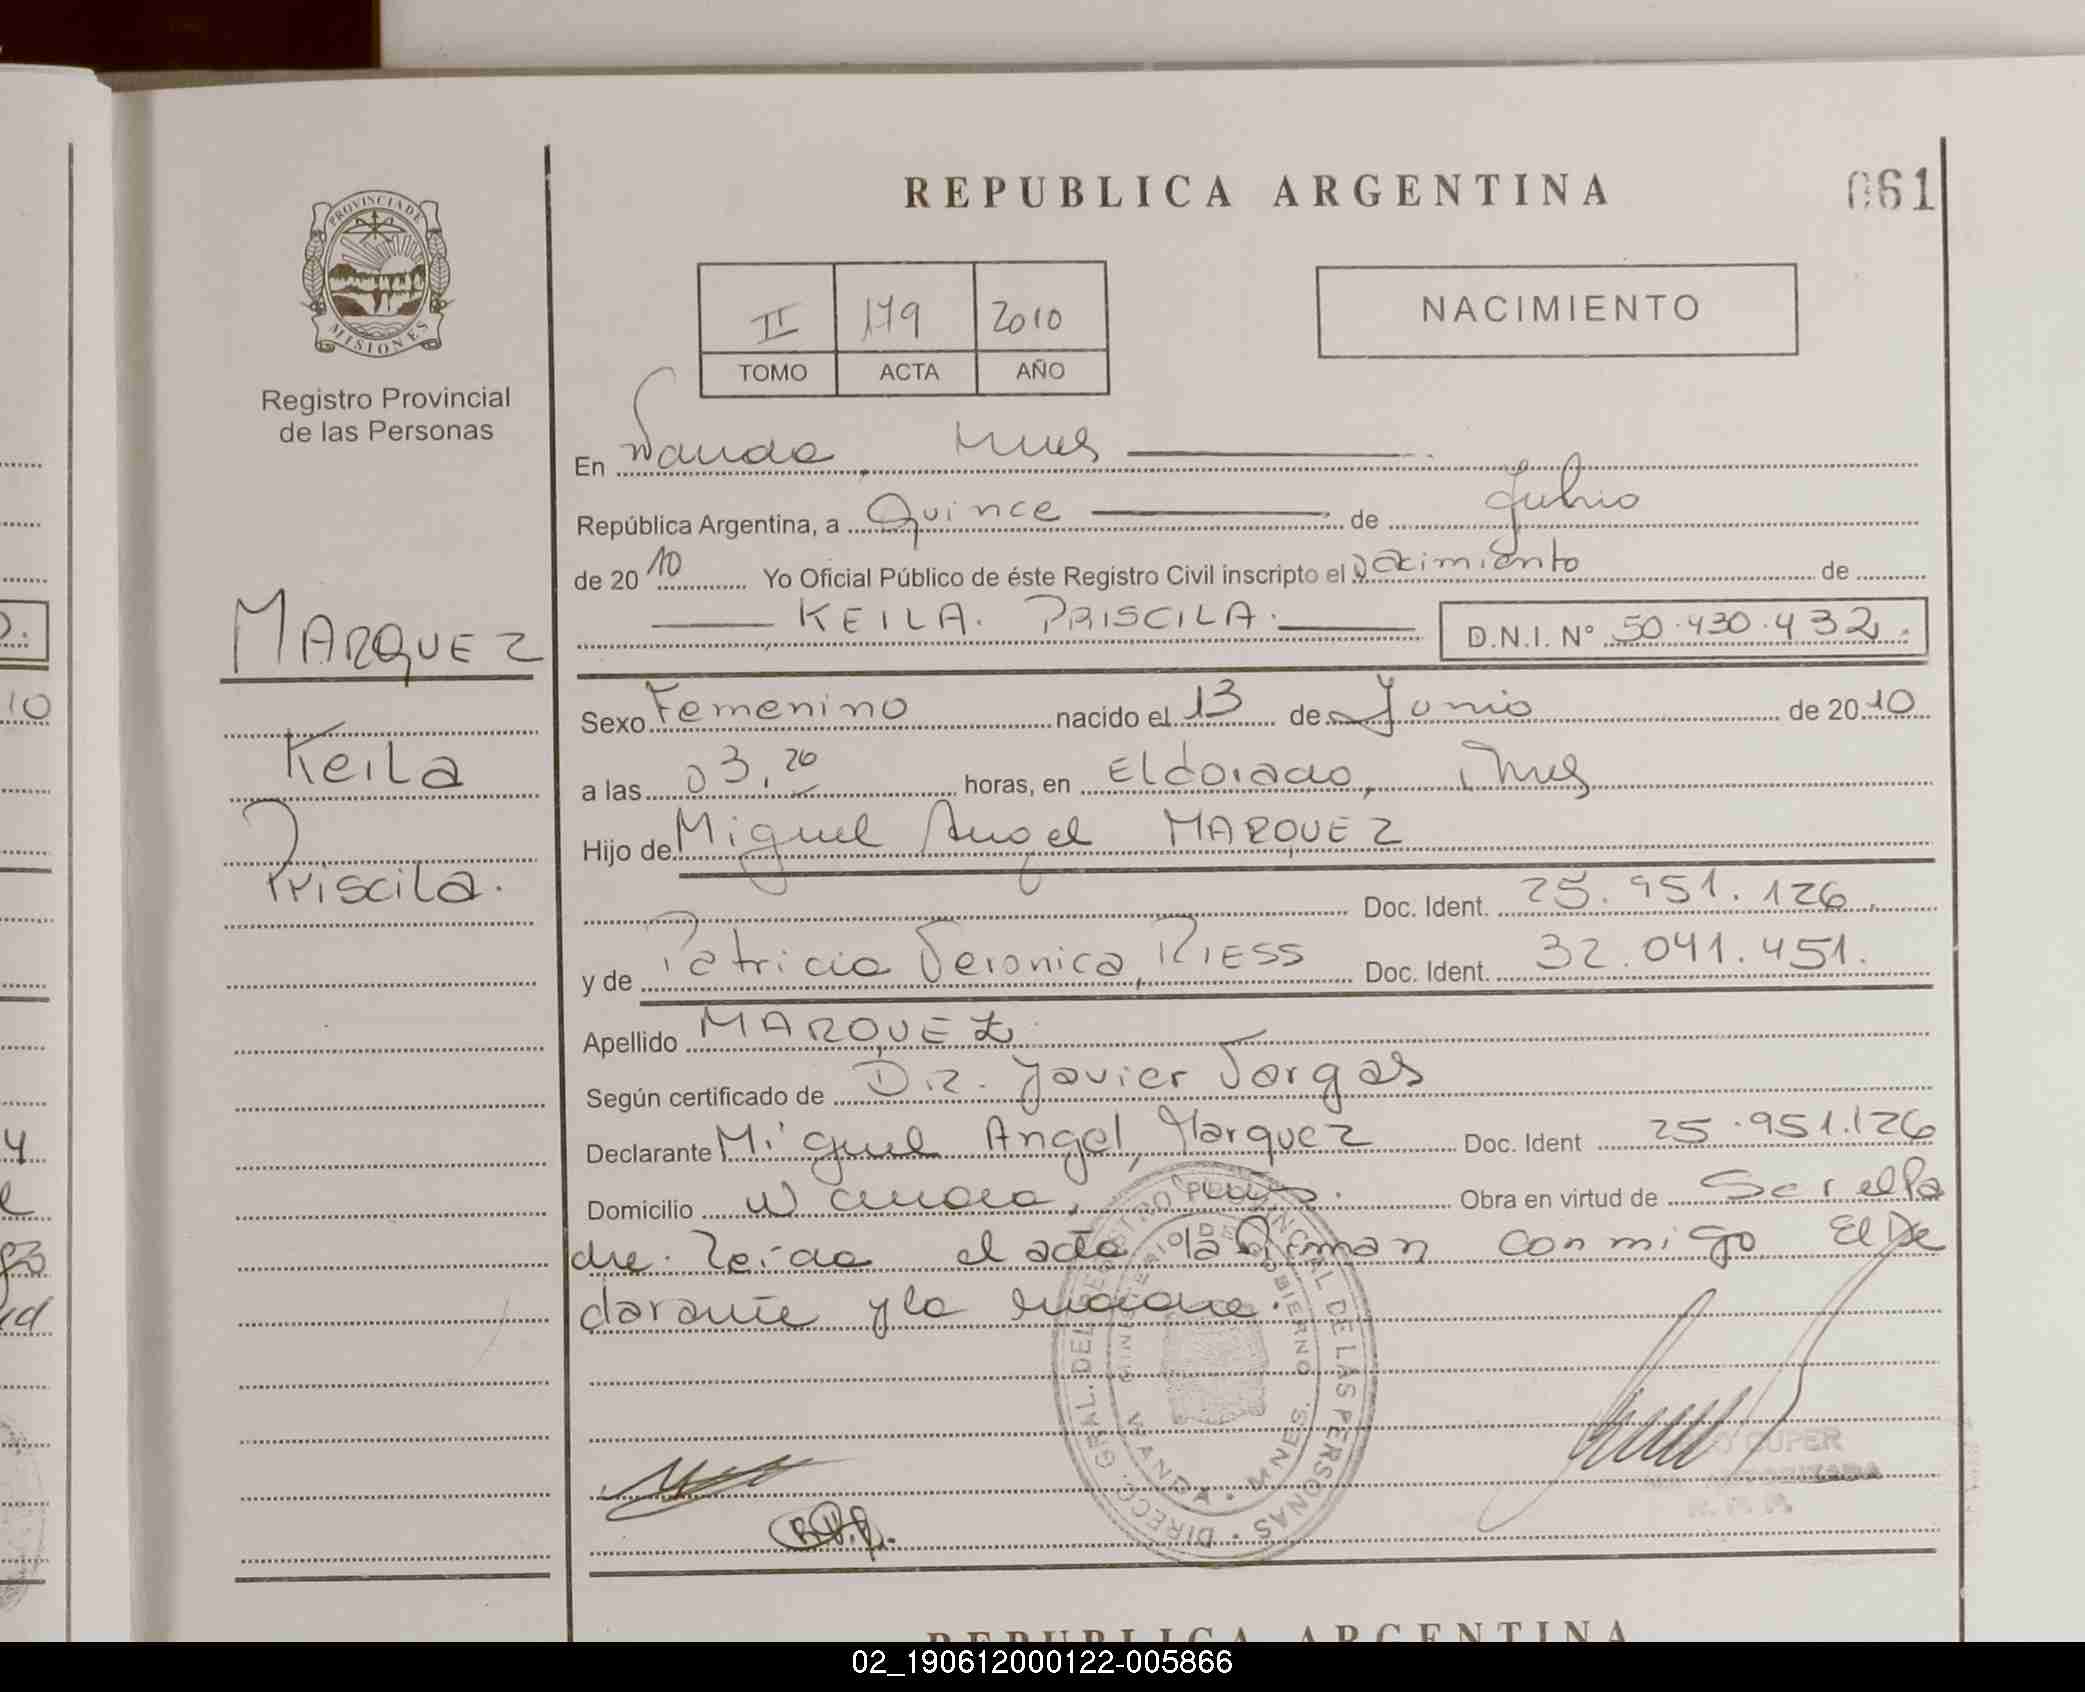 REPUBLICA ARGENTINA
061
PROVINCIA DE
MISIONES
Registro Provincial
de las Personas
II 179 2010
TOMO ACTA AÑO
NACIMIENTO
En Wanda, Mnes
República Argentina, a Quince de Julio
de 2010 Yo Oficial Público de éste Registro Civil inscripto el Nacimiento de
KEILA. PRISCILA. D.N.I. Nº 50.430.432.
MARQUEZ
Keila
Priscila.
Sexo Femenino nacido el 13 de Junio de 2010
a las 03,20 horas, en Eldorado, Mnes
Hijo de Miguel Angel MARQUEZ
Doc. Ident. 25.951.126.
y de Patricia Veronica, RIESS Doc. Ident. 32.041.451.
Apellido MARQUEZ
Según certificado de Dr. Javier Vargas
Declarante Miguel Angel, Marquez Doc. Ident 25.951.126
Domicilio Wanda, Mnes. Obra en virtud de Ser el Pa
dre. Leida el acta la firman conmigo El De
clarante y la madre.
DIRECC. GRAL. DEL REGISTRO PROVINCIAL DE LAS PERSONAS
MINISTERIO DE GOBIERNO
WANDA - MNES.
CUPER
REPUBLICA ARGENTINA
02_190612000122-005866